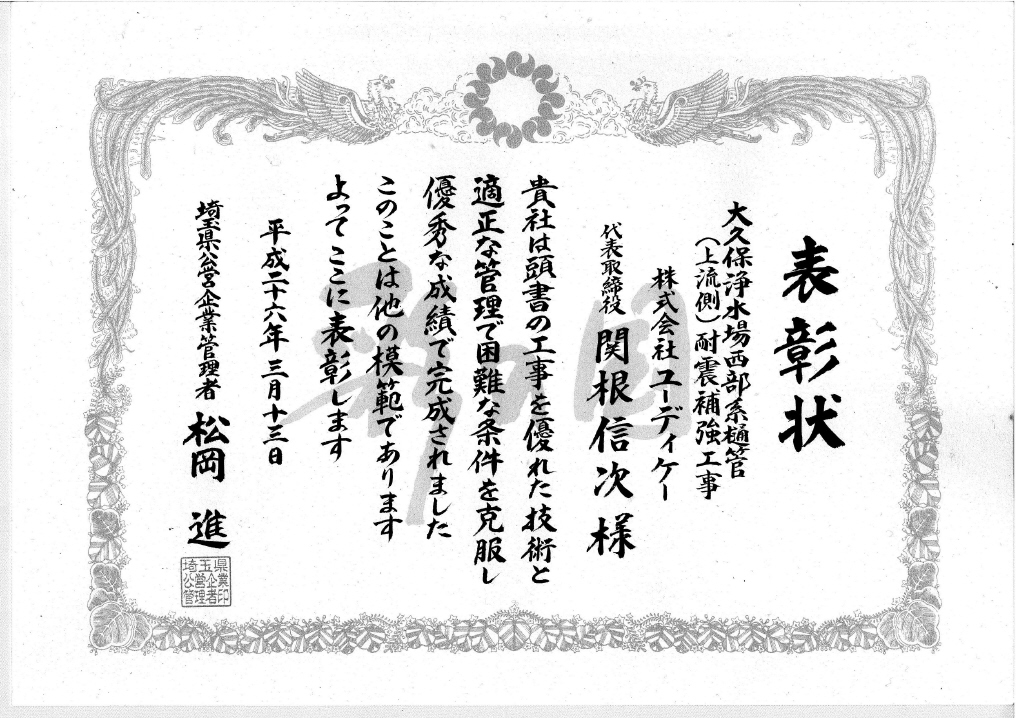 表彰状
大久保浄水場西部系樋管
（上流側）耐震補強工事
株式会社ユーディケー
代表取締役 関根信次様
貴社は頭書の工事を優れた技術と
適正な管理で困難な条件を克服し
優秀な成績で完成されました
このことは他の模範であります
よってここに表彰します
平成二十六年三月十三日
埼玉県公営企業管理者 松岡 進
埼玉県
公営企業
管理者印